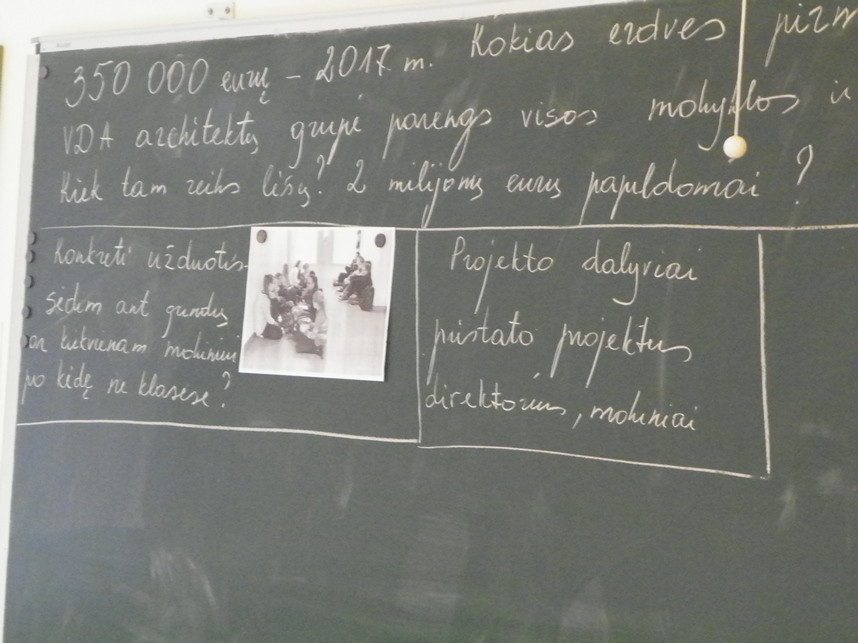 350 000 eurų – 2017 m. Kokias erdves pirm
VDA architektų grupė parengs visos mokyklos ir
Kiek tam reiks lėšų? 2 milijonų eurų papildomai?
Konkreti užduotis.
sėdim ant grindų
ar kiekvienam mokiniui
po kėdę ne klasėse?
Projekto dalyviai
pristato projektus
direktorius, mokiniai